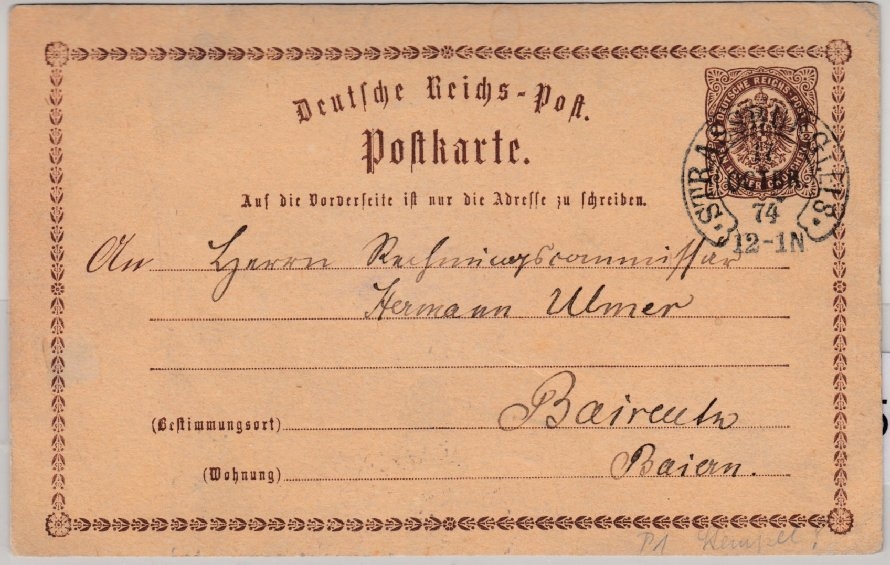 Deutsche Reichs-Post.
Postkarte.
Auf die Vorderseite ist nur die Adresse zu schreiben.
DEUTSCHE REICHS-POST
17
OCTBR.
74
12-1N
An Herrn Rechnungscommissär
Hermann Ulmer
(Bestimmungsort) Baireuth
(Wohnung) Baiern.
P1 Stempel!